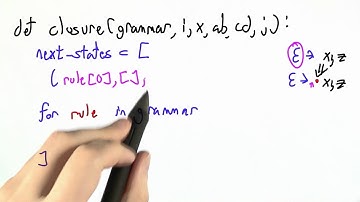 def closure(grammar, i, x, ab, cd, j):
next-states = [
(rule[0],[],
for rule in grammar
]
ε → xyz
ε → • xyz